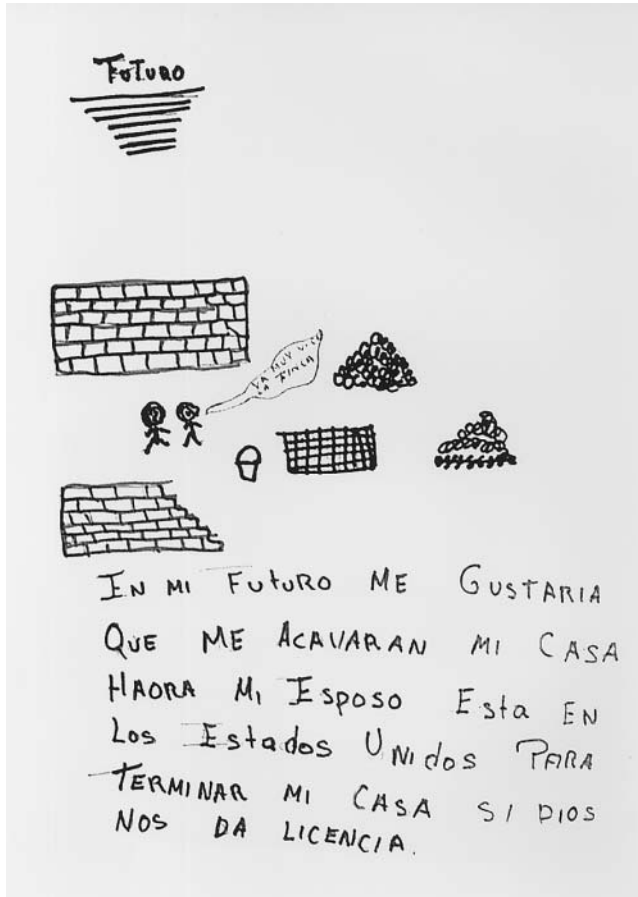 FUTURO
YA MUY
LA FINCA
IN MI FUTURO ME GUSTARIA
QUE ME ACAVARAN MI CASA
HAORA MI Esposo Esta EN
Los Estados UNidos PARA
TERMINAR MI CASA SI DIOS
NOS DA LICENCIA.